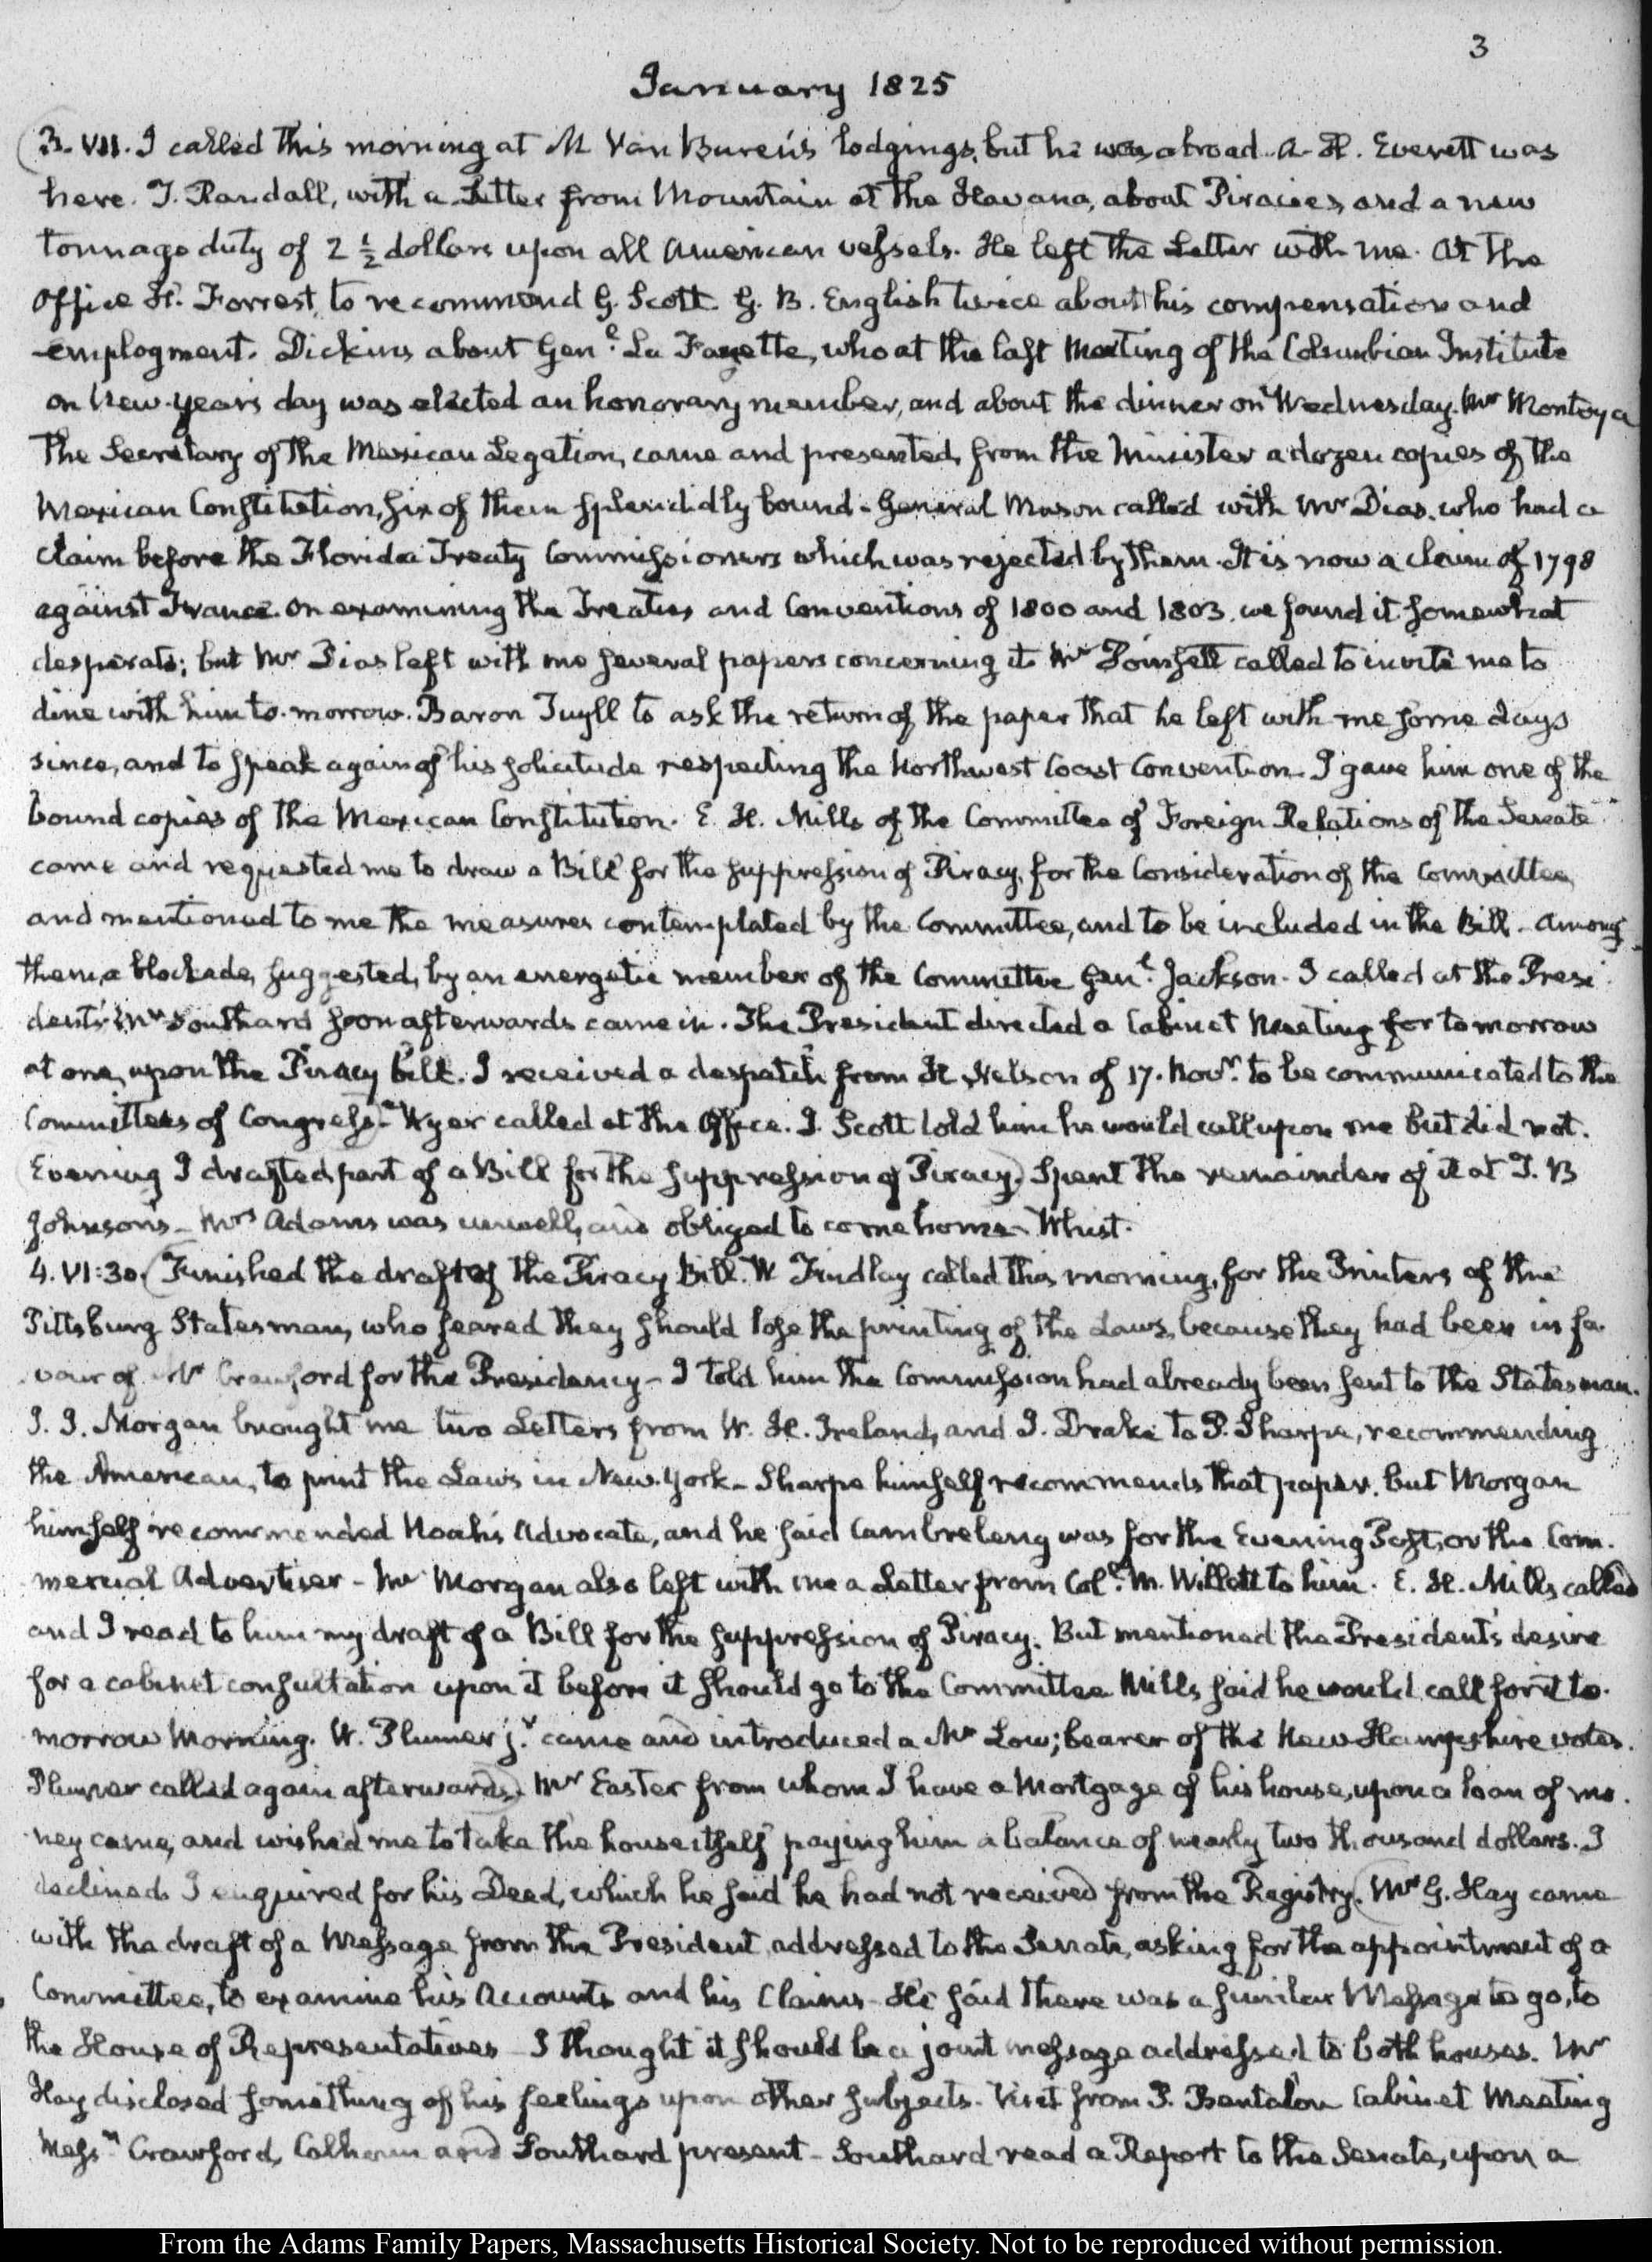 3
January 1825
3. VII. I called this morning at M Van Buren's lodgings, but he was abroad. A. H. Everett was
here. T. Randall, with a Letter from Mountain at the Havana, about Piracies, and a new
tonnage duty of 2 1/2 dollars upon all American vessels. He left the Letter with me. At the
Office H. Forrest, to recommend G. Scott. G. B. English twice about his compensation and
employment. Dickins about Genl. La Fayette, who at the last Meeting of the Columbian Institute
on New-years day was elected an honorary member, and about the dinner on Wednesday. Mr Montoya
The Secretary of the Mexican Legation, came and presented, from the Minister a dozen copies of the
Mexican Constitution, six of them splendidly bound - General Mason called with Mr Dias, who had a
claim before the Florida Treaty Commissioners which was rejected by them. It is now a claim of 1798
against France. On examining the Treaties and Conventions of 1800 and 1803. we found it somewhat
desperate; but Mr Dias left with me several papers concerning it. Mr Poinsett called to invite me to
dine with him to-morrow. Baron Tuyll to ask the return of the paper that he left with me some days
since, and to speak again of his solicitude respecting the Northwest Coast Convention. I gave him one of the
bound copies of the Mexican Constitution. E. H. Mills of the Committee of Foreign Relations of the Senate
came and requested me to draw a Bill for the suppression of Piracy, for the Consideration of the Committee,
and mentioned to me the measures contemplated by the Committee, and to be included in the Bill - Among
them, a blockade, suggested, by an energetic member of the Committee Genl. Jackson - I called at the Presi-
dent's. Mr Southard soon afterwards came in. The President directed a Cabinet Meeting for tomorrow
at one, upon the Piracy bill. I received a despatch from H Nelson of 17. Novr. to be communicated to the
Committees of Congress - Wyer called at the Office. J. Scott told him he would call upon me but did not.
Evening I drafted part of a Bill for the suppression of Piracy. Spent the remainder of it at T. B
Johnson's - Mrs Adams was unwell, and obliged to come home - Whist.
4. VI:30. Finished the draft of the Piracy Bill. W Findlay called this morning, for the Printers of the
Pittsburg Statesman, who feared they should lose the printing of the Laws, because they had been in fa-
vour of Mr Crawford for the Presidency - I told him the Commission had already been sent to the Statesman.
J. J. Morgan brought me two Letters from W. H. Ireland, and J. Drake to P. Sharpe, recommending
the American, to print the Laws in New-York - Sharpe himself recommends that paper, but Morgan
himself recommended Noah's Advocate, and he said Cambreleng was for the Evening Post, or the Com-
mercial Advertiser - Mr Morgan also left with me a Letter from Coll. M. Willett to him. E. H. Mills called
and I read to him my draft of a Bill for the suppression of Piracy. But mentioned the President's desire
for a cabinet consultation upon it before it should go to the Committee. Mills said he would call for it to-
morrow Morning. W. Plumer jr. came and introduced a Mr Low; bearer of the New Hampshire votes.
Plumer called again afterwards. Mr Easter from whom I have a Mortgage of his house, upon a loan of mo-
ney came, and wished me to take the house itself paying him a balance of nearly two thousand dollars. I
declined. I enquired for his Deed, which he said he had not received from the Registry. Mr G. Hay came
with the draft of a Message from the President, addressed to the Senate, asking for the appointment of a
Committee, to examine his Accounts and his Claims - He said there was a similar Message to go, to
the House of Representatives - I thought it should be a joint message addressed to both houses. Mr
Hay disclosed something of his feelings upon other subjects - Visit from P. Bentalou Cabinet Meeting
Messrs Crawford, Calhoun and Southard present - Southard read a Report to the Senate, upon a
From the Adams Family Papers, Massachusetts Historical Society. Not to be reproduced without permission.